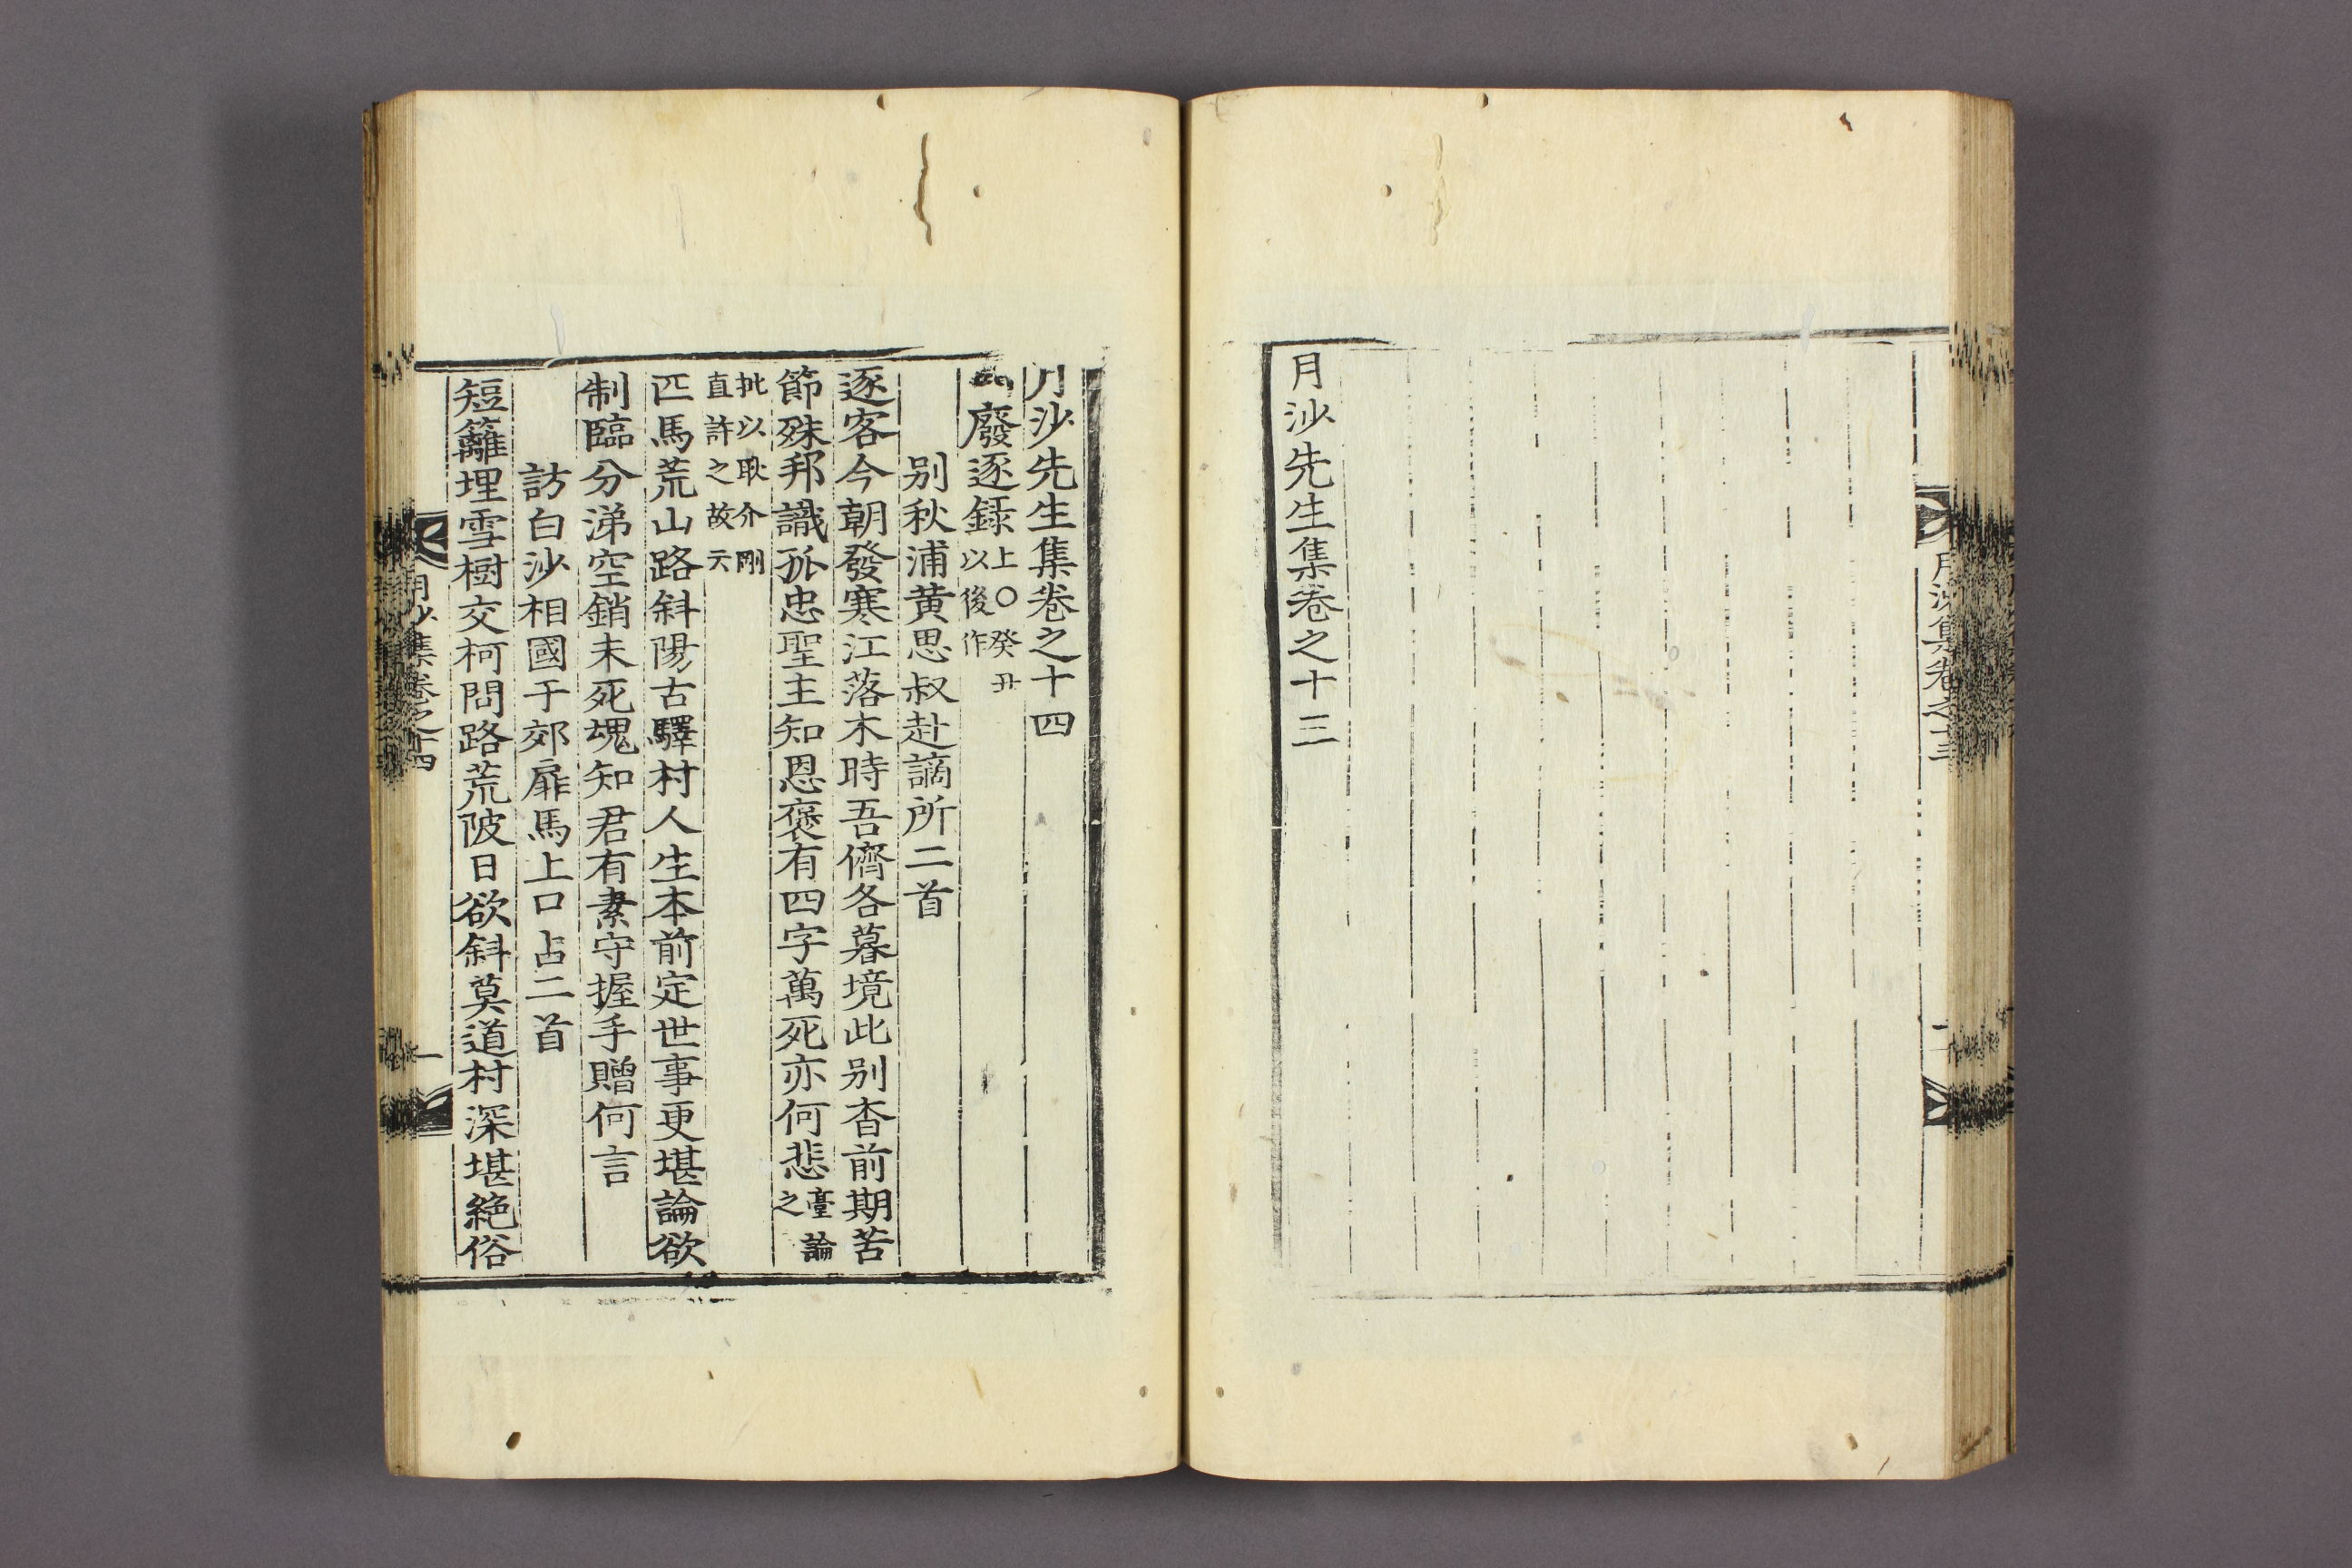 月沙集卷之十三
月沙先生集卷之十三
月沙先生集卷之十四
廢逐錄上○癸丑以後作
別秋浦黃思叔赴謫所二首
逐客今朝發寒江落木時吾儕各暮境此別杳前期苦
節殊邦識孤忠聖主知恩褒有四字萬死亦何悲臺論之
批以耿介剛直許之故云
匹馬荒山路斜陽古驛村人生本前定世事更堪論欲
制臨分涕空銷未死魂知君有素守握手贈何言
訪白沙相國于郊扉馬上口占二首
短籬埋雪樹交柯問路荒陂日欲斜莫道村深堪絶俗
月沙集卷之十四
一